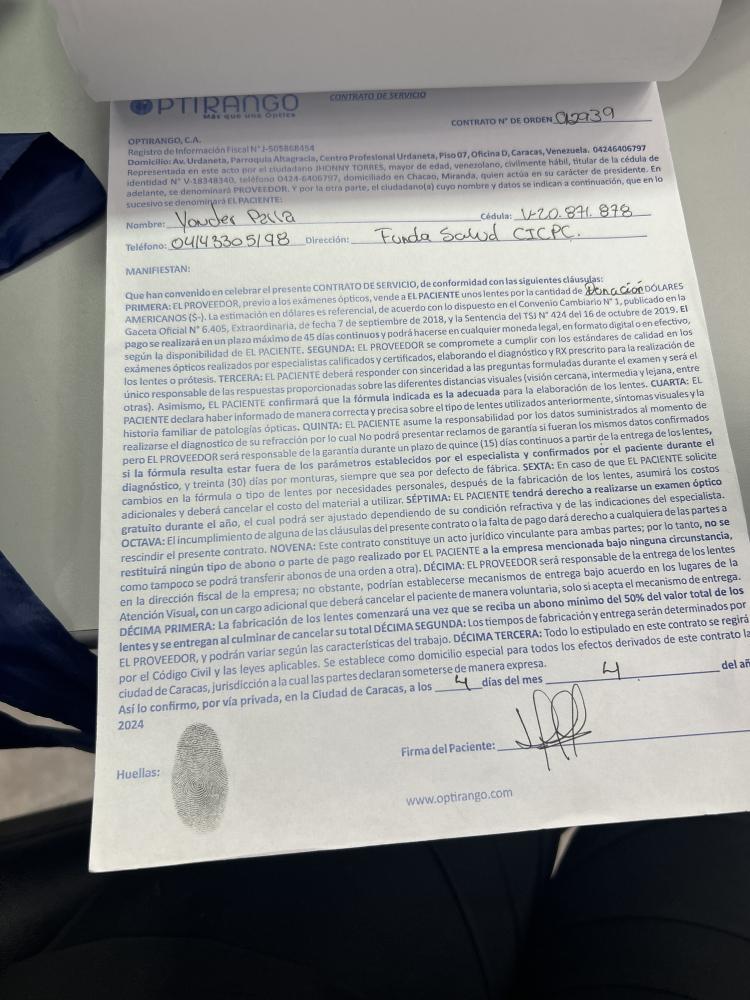 OPTIRANGO
Más que una Óptica
CONTRATO DE SERVICIO
CONTRATO N° DE ORDEN 012939
OPTIRANGO, C.A.
Registro de Información Fiscal N°J-505868454
Domicilio: Av. Urdaneta, Parroquia Altagracia, Centro Profesional Urdaneta, Piso 07, Oficina D, Caracas, Venezuela. 04246406797
Representada en este acto por el ciudadano JHONNY TORRES, mayor de edad, venezolano, civilmente hábil, titular de la cédula de
identidad N° V-18348340, teléfono 0424-6406797, domiciliado en Chacao, Miranda, quien actúa en su carácter de presidente. En
adelante, se denominará PROVEEDOR. Y por la otra parte, el ciudadano(a) cuyo nombre y datos se indican a continuación, que en lo
sucesivo se denominará EL PACIENTE:
Nombre: Yonder Parra Cédula: V-20.871.878
Teléfono: 04143305198 Dirección: Funda Salud CICPC.
MANIFIESTAN:
Que han convenido en celebrar el presente CONTRATO DE SERVICIO, de conformidad con las siguientes cláusulas:
PRIMERA: EL PROVEEDOR, previo a los exámenes ópticos, vende a EL PACIENTE unos lentes por la cantidad de Donación DÓLARES
AMERICANOS ($-). La estimación en dólares es referencial, de acuerdo con lo dispuesto en el Convenio Cambiario N° 1, publicado en la
Gaceta Oficial N° 6.405, Extraordinaria, de fecha 7 de septiembre de 2018, y la Sentencia del TSJ N° 424 del 16 de octubre de 2019. El
pago se realizará en un plazo máximo de 45 días continuos y podrá hacerse en cualquier moneda legal, en formato digital o en efectivo,
según la disponibilidad de EL PACIENTE. SEGUNDA: EL PROVEEDOR se compromete a cumplir con los estándares de calidad en los
exámenes ópticos realizados por especialistas calificados y certificados, elaborando el diagnóstico y RX prescrito para la realización de
los lentes o prótesis. TERCERA: EL PACIENTE deberá responder con sinceridad a las preguntas formuladas durante el examen y será el
único responsable de las respuestas proporcionadas sobre las diferentes distancias visuales (visión cercana, intermedia y lejana, entre
otras). Asimismo, EL PACIENTE confirmará que la fórmula indicada es la adecuada para la elaboración de los lentes. CUARTA: EL
PACIENTE declara haber informado de manera correcta y precisa sobre el tipo de lentes utilizados anteriormente, síntomas visuales y la
historia familiar de patologías ópticas. QUINTA: EL PACIENTE asume la responsabilidad por los datos suministrados al momento de
realizarse el diagnostico de su refracción por lo cual No podrá presentar reclamos de garantía si fueran los mismos datos confirmados
pero EL PROVEEDOR será responsable de la garantía durante un plazo de quince (15) días continuos a partir de la entrega de los lentes,
si la fórmula resulta estar fuera de los parámetros establecidos por el especialista y confirmados por el paciente durante el
diagnóstico, y treinta (30) días por monturas, siempre que sea por defecto de fábrica. SEXTA: En caso de que EL PACIENTE solicite
cambios en la fórmula o tipo de lentes por necesidades personales, después de la fabricación de los lentes, asumirá los costos
adicionales y deberá cancelar el costo del material a utilizar. SÉPTIMA: EL PACIENTE tendrá derecho a realizarse un examen óptico
gratuito durante el año, el cual podrá ser ajustado dependiendo de su condición refractiva y de las indicaciones del especialista.
OCTAVA: El incumplimiento de alguna de las cláusulas del presente contrato o la falta de pago dará derecho a cualquiera de las partes a
rescindir el presente contrato. NOVENA: Este contrato constituye un acto jurídico vinculante para ambas partes; por lo tanto, no se
restituirá ningún tipo de abono o parte de pago realizado por EL PACIENTE a la empresa mencionada bajo ninguna circunstancia,
como tampoco se podrá transferir abonos de una orden a otra). DÉCIMA: EL PROVEEDOR será responsable de la entrega de los lentes
en la dirección fiscal de la empresa; no obstante, podrían establecerse mecanismos de entrega bajo acuerdo en los lugares de la
Atención Visual, con un cargo adicional que deberá cancelar el paciente de manera voluntaria, solo si acepta el mecanismo de entrega.
DÉCIMA PRIMERA: La fabricación de los lentes comenzará una vez que se reciba un abono mínimo del 50% del valor total de los
lentes y se entregan al culminar de cancelar su total DÉCIMA SEGUNDA: Los tiempos de fabricación y entrega serán determinados por
EL PROVEEDOR, y podrán variar según las características del trabajo. DÉCIMA TERCERA: Todo lo estipulado en este contrato se regirá
por el Código Civil y las leyes aplicables. Se establece como domicilio especial para todos los efectos derivados de este contrato la
ciudad de Caracas, jurisdicción a la cual las partes declaran someterse de manera expresa.
Así lo confirmo, por vía privada, en la Ciudad de Caracas, a los 4 días del mes 4 del añ
2024
Firma del Paciente:
Huellas:
www.optirango.com